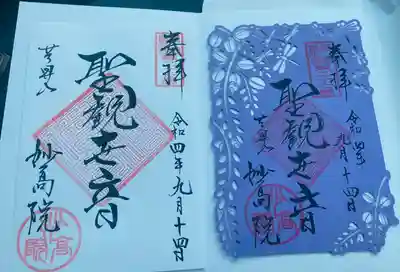 奉拝
令和四年九月十四日
聖観世音
妙高院
奉拝
令和四年九月十四日
聖観世音
妙高院